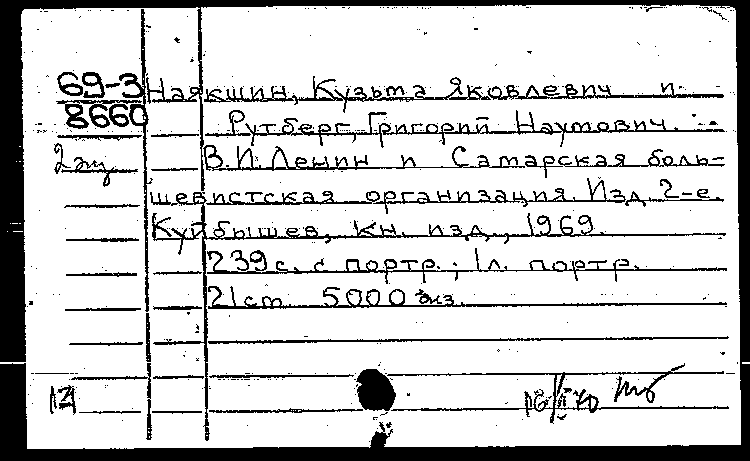 69-3 Наякшин, Кузьма Яковлевич и
8660 Рутберг, Григорий Наумович.
2 экз В.И. Ленин и Самарская боль-
шевистская организация. Изд. 2-е.
Куйбышев, кн. изд., 1969.
239 с. с портр.; 1 л. портр.
21 cm 5000 экз.